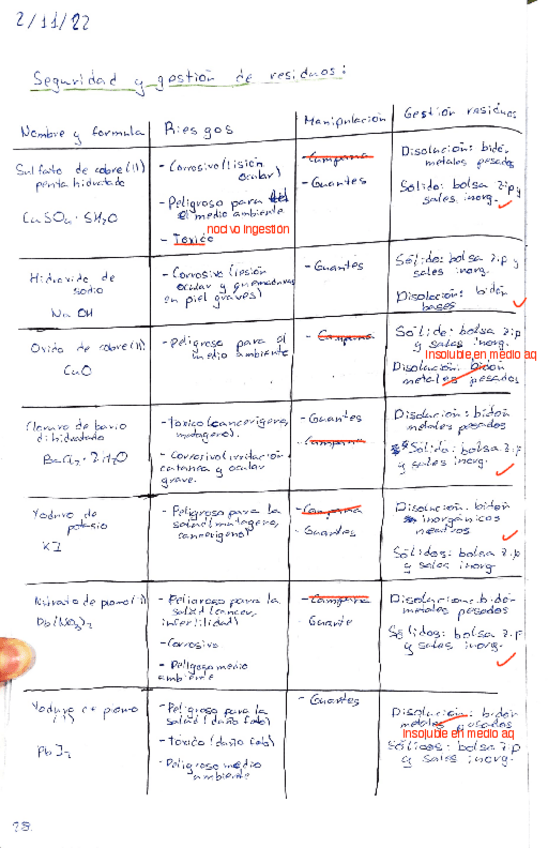 2/11/22
Seguridad y gestión de residuos:
Nombre y formula
Riesgos
Manipulación
Gestión residuos
Sulfato de cobre (II)
pentahidratado
CuSO4 · 5H2O
- Corrosivo (lisión
ocular)
- Peligroso para
el medio ambiente
nocivo ingestión
- Toxico
- Campana
- Guantes
Disolución: bidón
metales pesados
Sólido: bolsa zip y
sales inorg.
Hidroxido de
sodio
NaOH
- Corrosivo (lesión
ocular y quemaduras
en piel graves)
- Guantes
Sólido: bolsa zip y
sales inorg.
Disolución: bidón
bases
Oxido de cobre (II)
CuO
- Peligroso para el
medio ambiente
- Campana
Sólido: bolsa zip
y sales inorg.
Insoluble en medio aq
Disolución: bidón
metales pesados
Cloruro de bario
dihidratado
BaCl2 · 2H2O
- Toxico (cancerigeno,
mutageno).
- Corrosivo irritación
cutanea y ocular
grave.
- Guantes
- Campana
Disolución: bidón
metales pesados
Sólido: bolsa zip
y sales inorg.
Yoduro de
potasio
KI
- Peligroso para la
salud (mutageno,
cancerigeno)
- Campana
- Guantes
Disolución. bidón
inorgánicos
neutros
Sólidos: bolsa zip
y sales inorg
Nitrato de plomo (II)
Pb(NO3)2
- Peligroso para la
salud (cancer,
infertilidad)
- Corrosivo
- Peligroso medio
ambiente
- Campana
Guante
Disoluciones: bidón
metales pesados
Sólidos: bolsa zip
y sales inorg.
Yoduro de plomo
PbI2
- Peligroso para la
salud (daño feto)
- Tóxico (daño feto)
- Peligroso medio
ambiente
- Guantes
Disolución: bidón
metales pesados
insoluble en medio aq
Sólidos: bolsa zip
y sales inorg.